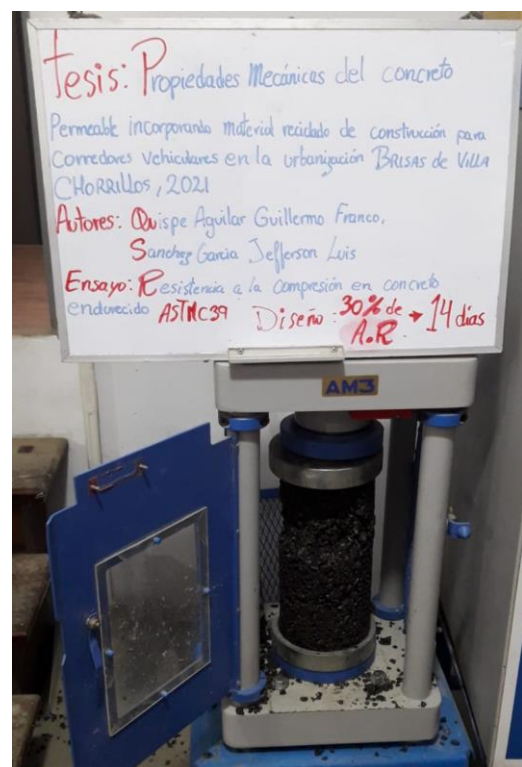 Tesis: Propiedades Mecánicas del concreto
Permeable incorporando material reciclado de construcción para
Corredores vehiculares en la urbanización BRISAS de VILLA
CHORRILLOS, 2021
Autores: Quispe Aguilar Guillermo Franco.
Sanchez Garcia Jefferson Luis
Ensayo: Resistencia a la compresión en concreto
endurecido ASTMC39 Diseño: 30% de → 14 días
A.R
AM3